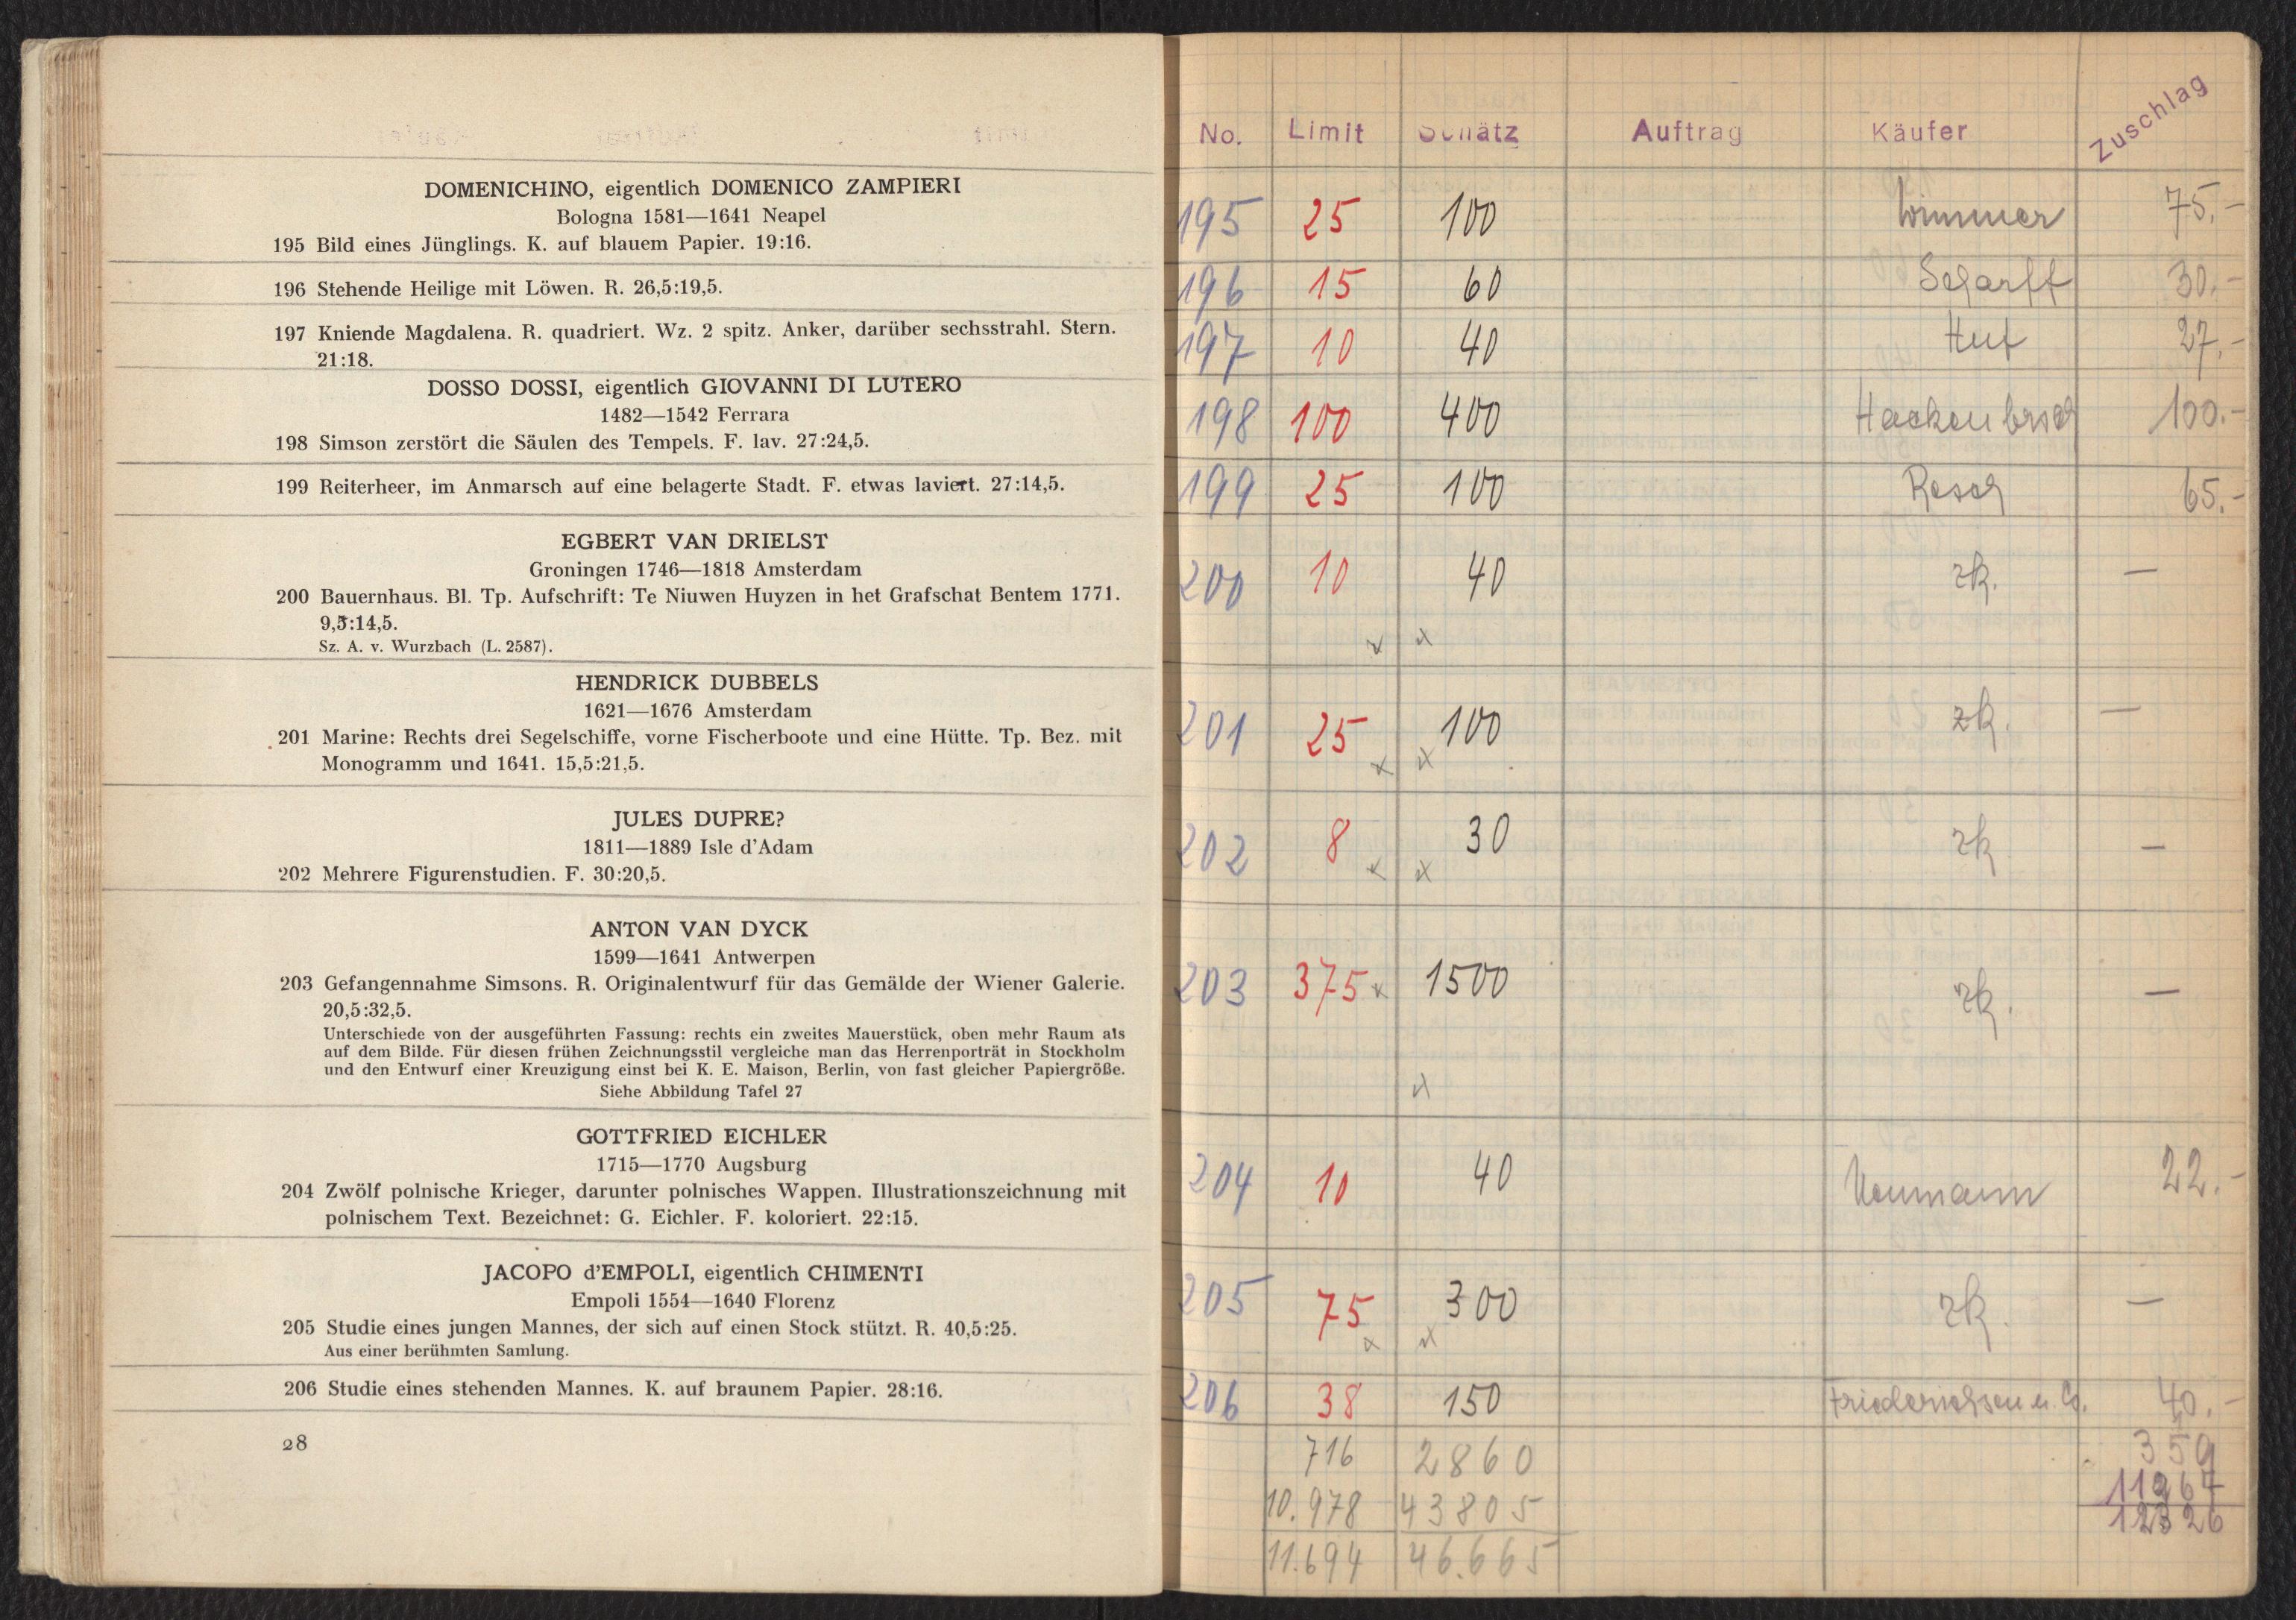 DOMENICHINO, eigentlich DOMENICO ZAMPIERI
Bologna 1581—1641 Neapel
195 Bild eines Jünglings. K. auf blauem Papier. 19:16.
196 Stehende Heilige mit Löwen. R. 26,5:19,5.
197 Kniende Magdalena. R. quadriert. Wz. 2 spitz. Anker, darüber sechsstrahl. Stern.
21:18.
DOSSO DOSSI, eigentlich GIOVANNI DI LUTERO
1482—1542 Ferrara
198 Simson zerstört die Säulen des Tempels. F. lav. 27:24,5.
199 Reiterheer, im Anmarsch auf eine belagerte Stadt. F. etwas laviert. 27:14,5.
EGBERT VAN DRIELST
Groningen 1746—1818 Amsterdam
200 Bauernhaus. Bl. Tp. Aufschrift: Te Niuwen Huyzen in het Grafschat Bentem 1771.
9,5:14,5.
Sz. A. v. Wurzbach (L. 2587).
HENDRICK DUBBELS
1621—1676 Amsterdam
201 Marine: Rechts drei Segelschiffe, vorne Fischerboote und eine Hütte. Tp. Bez. mit
Monogramm und 1641. 15,5:21,5.
JULES DUPRE?
1811—1889 Isle d'Adam
202 Mehrere Figurenstudien. F. 30:20,5.
ANTON VAN DYCK
1599—1641 Antwerpen
203 Gefangennahme Simsons. R. Originalentwurf für das Gemälde der Wiener Galerie.
20,5:32,5.
Unterschiede von der ausgeführten Fassung: rechts ein zweites Mauerstück, oben mehr Raum als
auf dem Bilde. Für diesen frühen Zeichnungsstil vergleiche man das Herrenporträt in Stockholm
und den Entwurf einer Kreuzigung einst bei K. E. Maison, Berlin, von fast gleicher Papiergröße.
Siehe Abbildung Tafel 27
GOTTFRIED EICHLER
1715—1770 Augsburg
204 Zwölf polnische Krieger, darunter polnisches Wappen. Illustrationszeichnung mit
polnischem Text. Bezeichnet: G. Eichler. F. koloriert. 22:15.
JACOPO d'EMPOLI, eigentlich CHIMENTI
Empoli 1554—1640 Florenz
205 Studie eines jungen Mannes, der sich auf einen Stock stützt. R. 40,5:25.
Aus einer berühmten Samlung.
206 Studie eines stehenden Mannes. K. auf braunem Papier. 28:16.
28
No. Limit Schätz Auftrag Käufer Zuschlag
195 25 100 Wimmer 75.-
196 15 60 Scharff 30.-
197 10 40 Huf 27.-
198 100 400 Hackenbroch 100.-
199 25 100 Resch 65.-
200 10 40 zk. —
201 25 100 zk. —
202 8 30 zk —
203 375 1500 zk. —
204 10 40 Neumann 22.-
205 75 300 zk. —
206 38 150 Friederichsen u. Co. 40.-
716 2860 359
10.978 43805
11.694 46.665